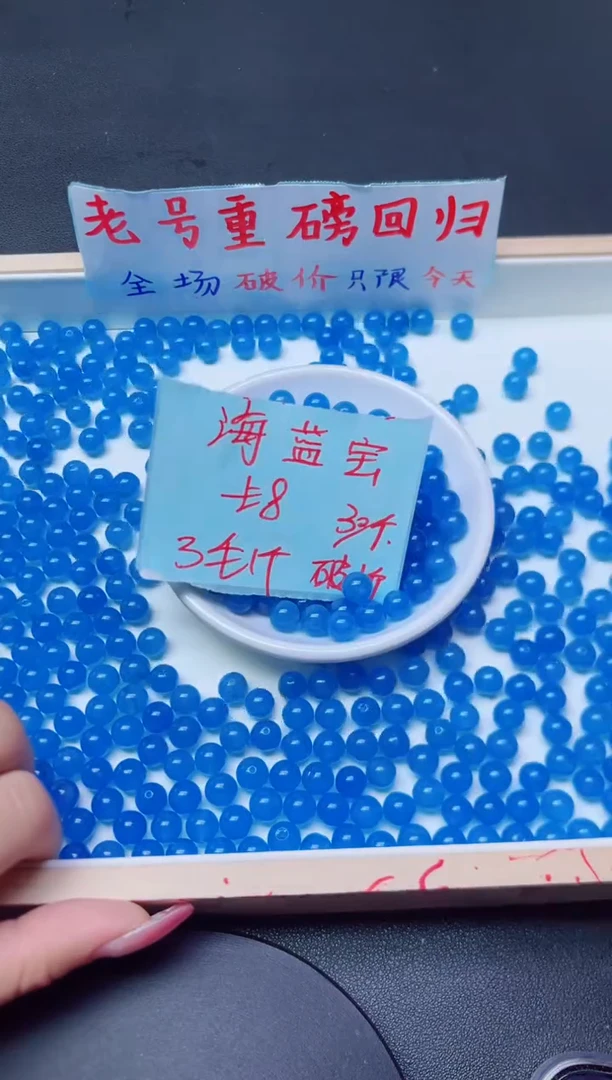 老号重磅回归
全场破价只限今天
海蓝宝
卡8
33个
3毛1个
破价